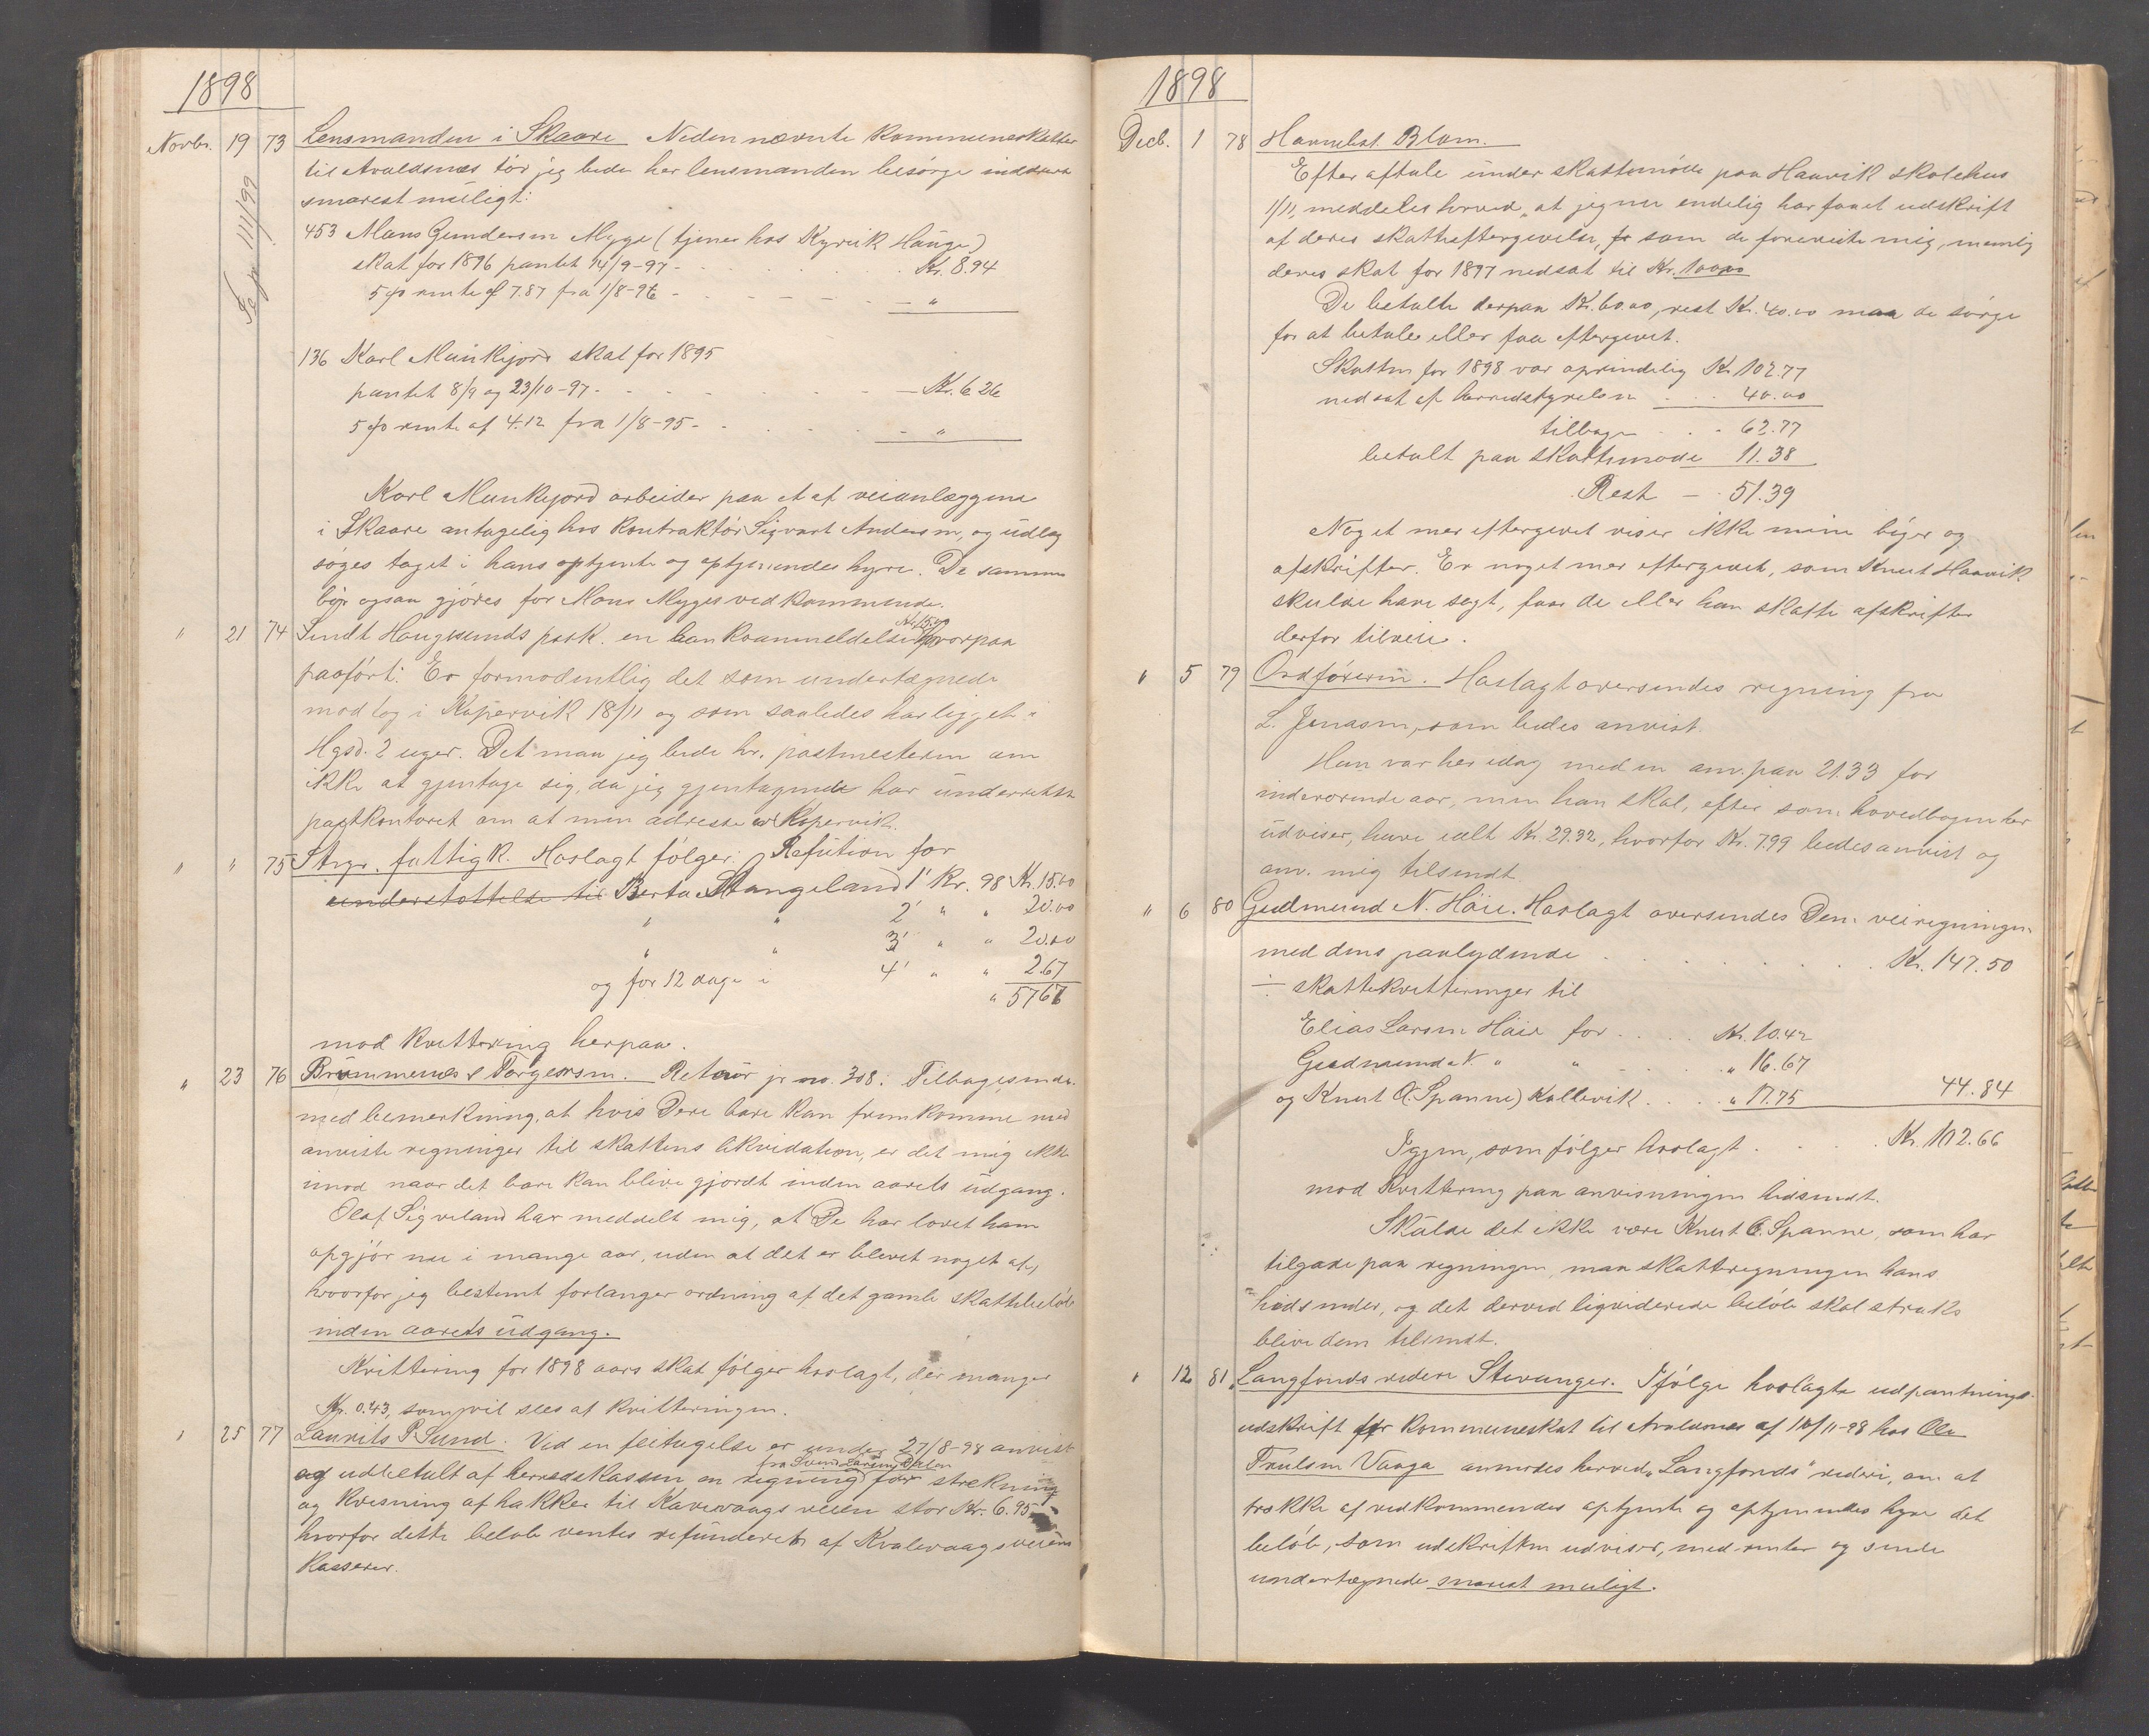 1898
Novbr. 19 73 Lensmanden i Skaare Nedennævnte kommuneskatter
til Avaldsnes tör jeg bede her lensmanden besörge inddrevet
snarest muligt:
453 Mons Gundersen Myge (tjener hos Kyrvik Hauge)
skat for 1896 pantet 14/9-97 - Kr. 8.94
5 % rente af 7.87 fra 1/8-96 - - "
136 Karl Munkejord skat for 1895
pantet 8/9 og 23/10-97 - Kr. 6.26
5 % rente af 4.12 fra 1/8-95 - - "
Karl Munkejord arbeider paa et af veianlæggene
i Skaare antagelig hos kontraktör Sigvart Andersen, og udlæg
söges taget i hans optjente og optjenendes hyre. De samme
bör ogsaa gjöres for Mons Myges vedkommende.
" 21 74 Sendt Haugesunds postk. en bankanmeldelse hvorpaa
paafört: Er formodentlig det som undertegnede
modtog i Kopervik 18/11 og som saaledes har ligget i
Hgsd. 2 uger. Det maa jeg bede hr. postmesteren om
ikke at gjentage sig, da jeg gjentagende har underrettet
postkontoret om at min adresse er Kopervik.
" " 75 Strgr. fattigk. Hoslagt fölger: Refution for
understöttelse til Berta Stangeland 1' Kr. 98 Kr. 15.00
" " 2' " " 20.00
" " 3' " " 20.00
og for 12 dage i 4' " " 2.67
" 57.67
mod kvittering herpaa.
" 23 76 Brömmenes & Torgersen. Retour jr no. 308. Tilbagesendes
med bemerkning, at hvis Dere bare kan fremkomme med
anviste regninger til skattens likvidation, er det mig ikke
imod naar det bare kan blive gjordt inden aarets udgang.
Olaf Sigveland har meddelt mig, at De har lovet ham
opgjör nu i mange aar, uden at det er blevet noget af,
hvorfor jeg bestemt forlanger ordning af det gamle skattebelöb
inden aarets udgang.
Kvittering for 1898 aars skat fölger hoslagt, der manger
Kr. 0.43, som vil sees af kvitteringen.
" 25 77 Laurits P. Sund. Ved en feitagelse er under 27/8-98 anvist
og udbetalt af herredskassen en regning fra Svend Larsen Dalen for strekning
og kvesning af hakker til Kaveraags veien stor Kr. 6.95
hvorfor dette belöb ventes refunderet af Kvalevaagsveiens
kasserer.
1898
Decb. 1 78 Hannibal Blom.
Efter aftale under skattemöde paa Haavik skolehus
1/11, meddeles herved, at jeg nu endelig har faaet udskrift
af deres skatteftergivelse, som de foreviste mig, nemlig
deres skat for 1897 nedsat til Kr. 100.00
De betalte derpaa Kr. 60.00, rest Kr. 40.00 maa de sörge
for at betale eller faa eftergivet.
Skatten for 1898 var oprindelig Kr. 102.77
nedsat af herredstyrelsen 40.00
tilbage 62.77
betalt paa skattemöde 11.38
Rest - 51.39
Noget mer eftergivet viser ikke mine böger og
afskrifter. Er noget mer eftergivet, som Knut Haavik
skulde have sagt, faar de eller han skaffe afskrifter
derfor tilveie.
" 5 79 Ordföreren. Hoslagt oversendes regning fra
L. Jonasen, som bedes anvist.
Han var her idag med en anv. paa 21.33 for
inderværende aar, men han skal, efter som hovedbogen her
udviser, have ialt Kr. 29.32, hvorfor Kr. 7.99 bedes anvist og
anv. mig tilsendt.
" 6 80 Gudmund N. Häie. Hoslagt oversendes Dem veiregningen
med dens paalydende Kr. 147.50
÷ skattekvitteringer til
Elias Larsen Häie for Kr. 10.42
Gudmund N. " " " 16.67
og Knut O. Spanne) Kallevik " 17.75 44.84
Igjen, som fölger hoslagt Kr. 102.66
mod kvittering paa anvisningen hidsendt.
Skulde det ikke være Knut O. Spanne, som har
tilgode paa regningen, maa skatteregningen hans
hidsendes, og det derved ligviderede belöb skal straks
blive dem tilsendt.
" 12 81 "Langfonds rederi Stavanger. Ifölge hoslagte udpantnings-
udskrift for kommuneskat til Avaldsnes af 10/11-98 hos Ole
Truulsen Vaaga anmodes herved "Langfonds" rederi, om at
trække af vedkommendes optjente og optjenendes hyre det
belöb, som udskriften udviser, med renter og sende
undertegnede snarest muligt.